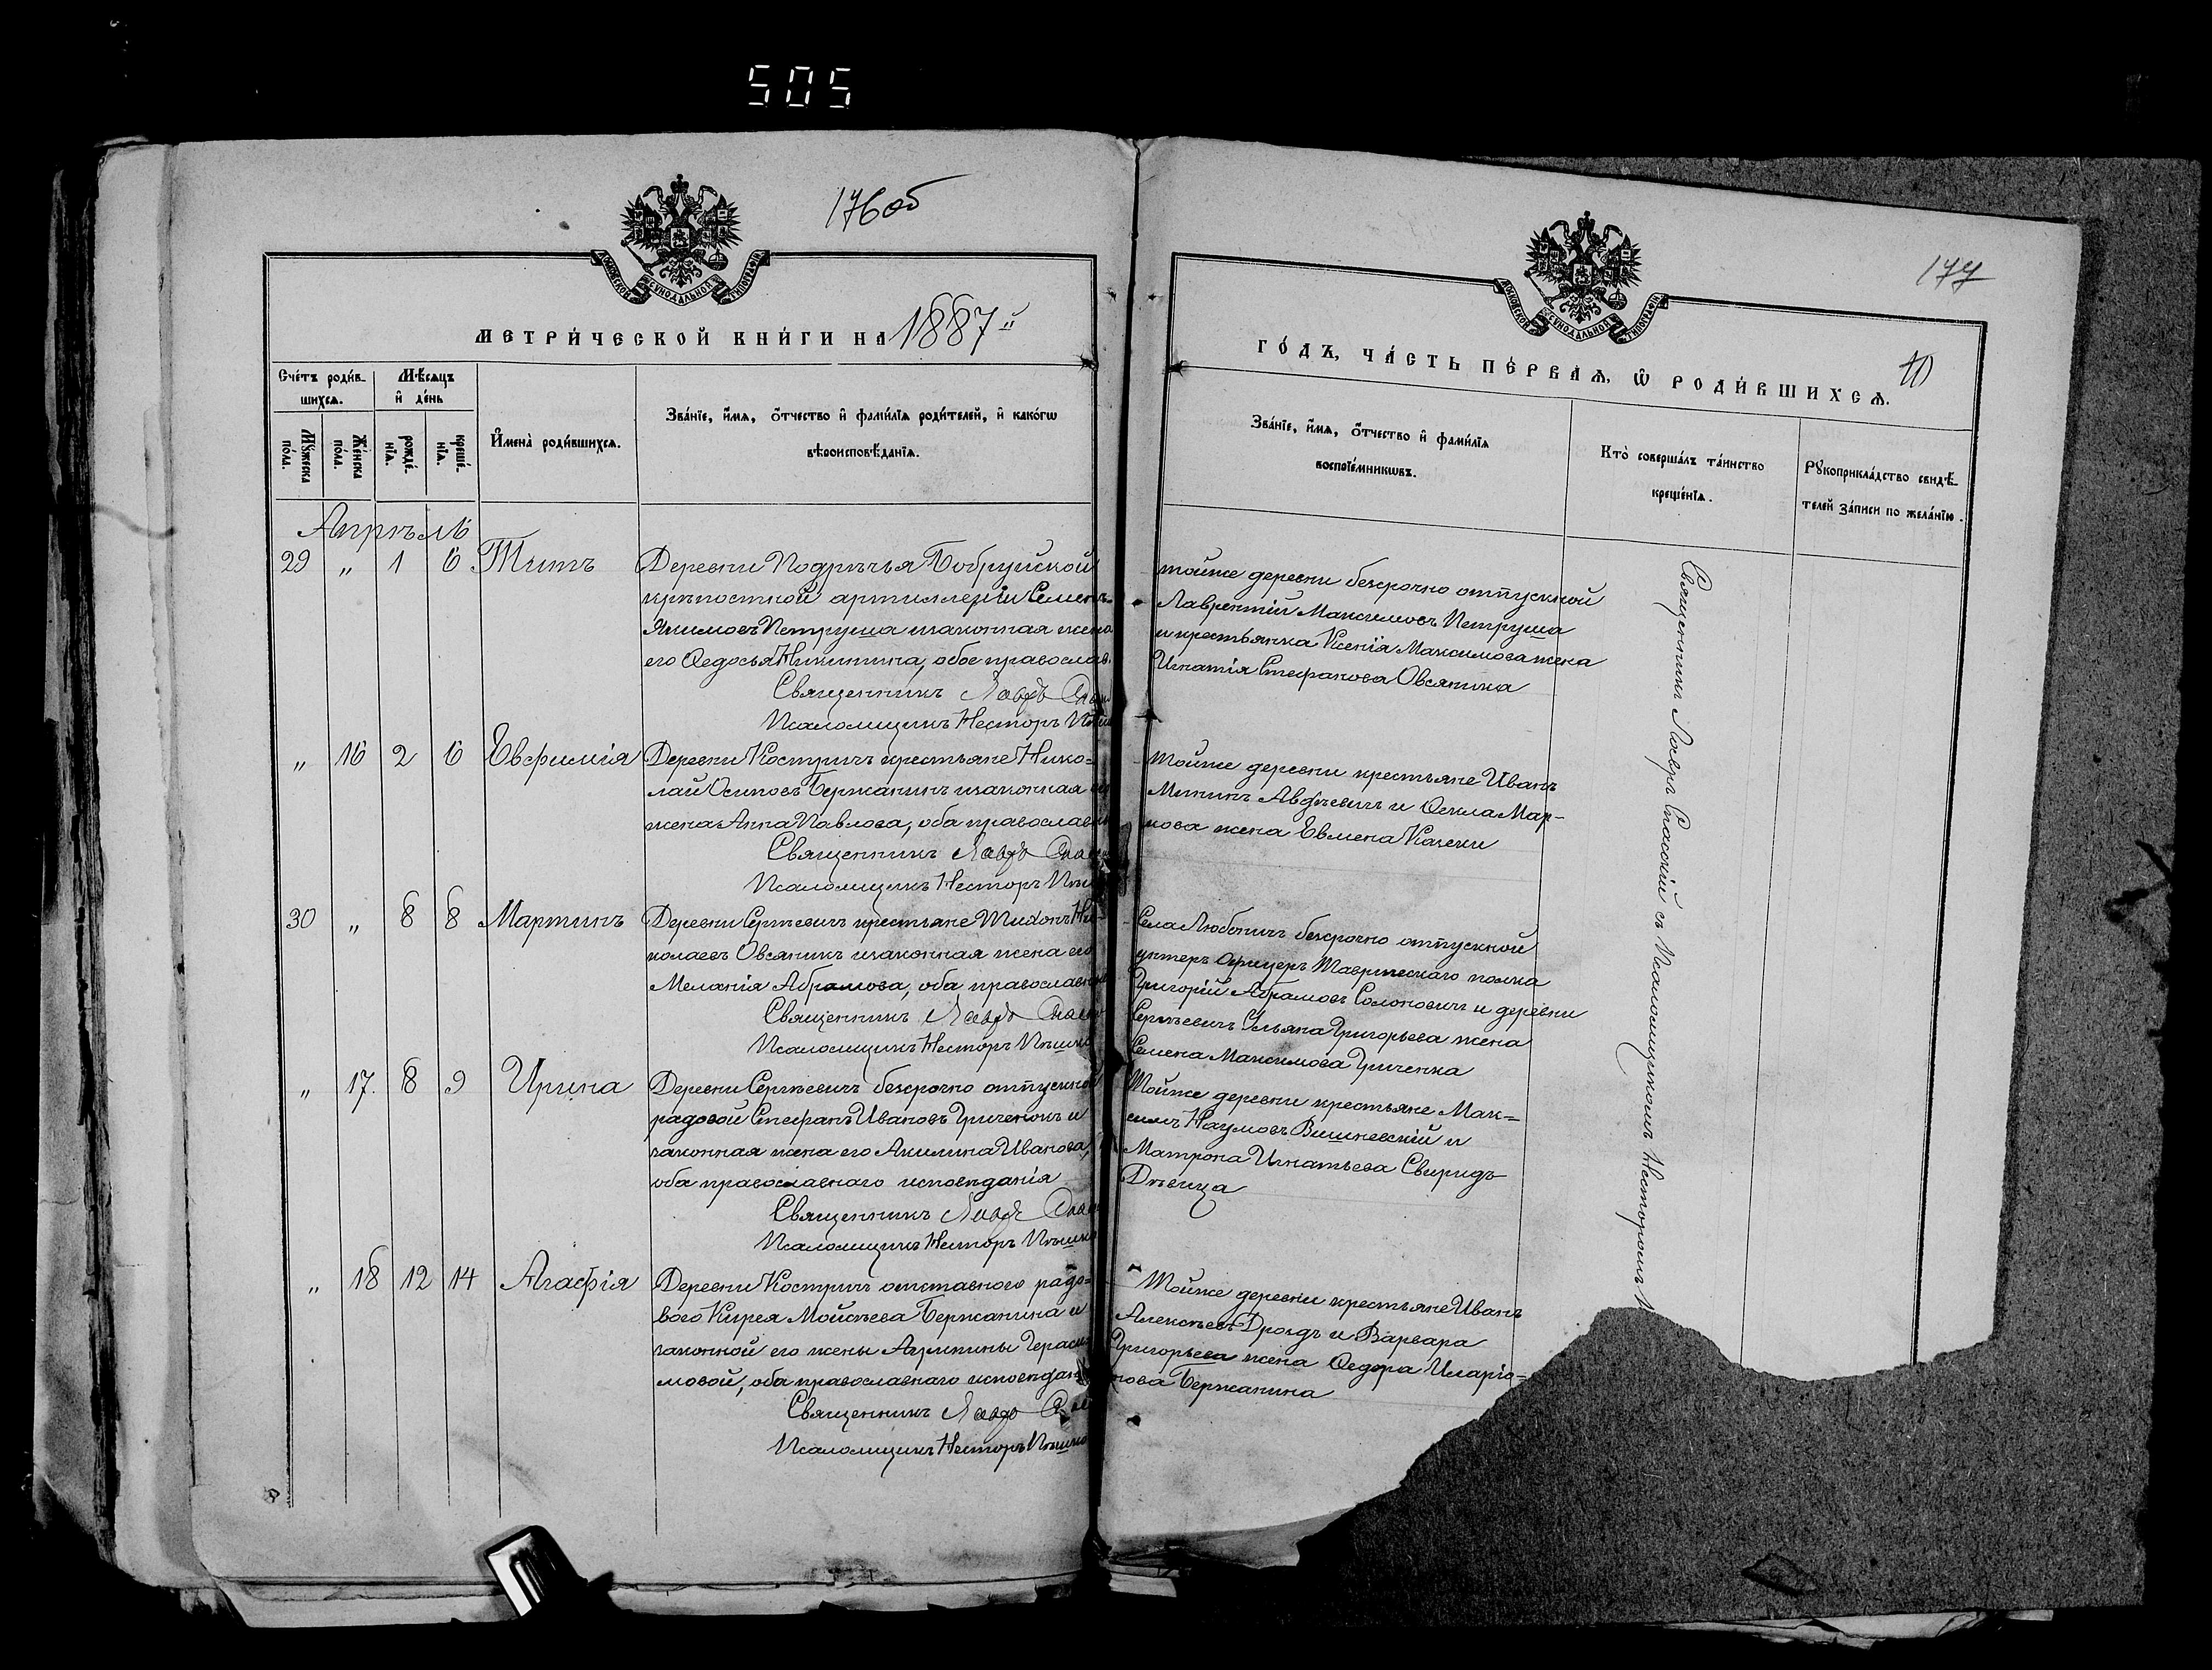 505
176 об
МОСКОВСКОЙ СѴНОДАЛЬНОЙ ТИПОГРАФІИ
МЕТРИ́ЧЕСКОЙ КНИ́ГИ НА 1887й
Сче́тъ роди́вшихся.
Мѣ́сяцъ и҆ де́нь
Мꙋ́жеска по́ла.
Же́нска по́ла.
рожде́нїя.
креще́нїя.
И҆мена̀ роди́вшихся.
Зва́нїе, и҆́мя, ѻ҆́тчество и҆ фами́лїя роди́телей, и҆ како́гѡ
вѣроисповѣ́данїя.
Апрѣль
29 „ 1 6 Титъ
Деревни Подрѣчья Бобруйской
крѣпостной артиллеріи Семенъ
Якимовъ Петруша изаконная жена
его Ѳедосья Никитина, обое православ.
Священникъ Лавръ
Псаломщикъ Несторъ
„ 16 2 6 Евфимія
Деревни Костричъ крестьяне Нико=
лай Осиповъ Бержанинъ изаконная его
жена Анна Павлова, оба православн
Священникъ Лавръ
Псаломщикъ Несторъ
30 „ 8 8 Мартинъ
Деревни Сергѣевичъ крестьяне Тихонъ Ни=
колаевъ Овсяникъ изаконная жена его
Меланія Абрамова, оба православн
Священникъ Лавръ
Псаломщикъ Несторъ
„ 17. 8 9 Ирина
Деревни Сергѣевичъ безсрочно отпускной
радовой Стефанъ Ивановъ Гриченокъ и
законная жена его Акилина Иванова,
оба православнаго исповѣданія
Священникъ Лавръ
Псаломщикъ Несторъ
„ 18 12 14 Агафія
Деревни Костричъ отставного радо=
вого Кирея Мойсѣева Бержанина и
законной его жены Агрипины Гераси
мовой, оба православнаго исповѣдан
Священникъ Лавръ
Псаломщикъ Несторъ
177
МОСКОВСКОЙ СѴНОДАЛЬНОЙ ТИПОГРАФІИ
ГО́ДЪ, ЧА́СТЬ ПЕ́РВАЯ, Ѽ РОДИ́ВШИХСЯ.
Зва́нїе, и҆́мя, ѻ҆́тчество и҆ фами́лїя
воспрїе́мникѡвъ.
Кто̀ соверша́лъ та́инство
креще́нїя.
Рꙋкоприкла́дство свидѣ́-
телей за́писи по жела́нїю.
тойже деревни безсрочно отпускной
Лаврентій Максимовъ Петруша
и крестьянка Ксенія Максимова жена
Игнатія Стефанова Овсяника
Тойже деревни крестьяне Иванъ
Мининъ Авдѣевичъ и Ѳекла Мар-
кова жена Евмена
Села Любоничъ безсрочно отпускной
унтеръ офицеръ Таврическаго полка
Григорій Абрамовъ Солоновичъ и деревни
Сергѣевичъ Ульяна Григорьева жена
Семена Максимова Гриченка
Тойже деревни крестьяне Мак=
симъ Наумовъ Вишневскій и
Матрона Игнатьева Свиридъ
Дѣвица
Тойже деревни крестьяне Иванъ
Алексѣевъ Дроздъ и Варвара
Григорьева жена Ѳедора Иларіо=
нова Бержанина
Священникъ Лавръ Спаскій съ Псаломщикомъ Несторомъ